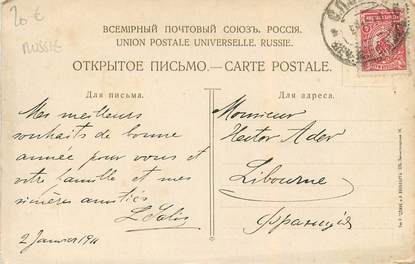 20 €
RUSSIE
ВСЕМІРНЫЙ ПОЧТОВЫЙ СОЮЗЪ. РОССІЯ.
UNION POSTALE UNIVERSELLE. RUSSIE.
ОТКРЫТОЕ ПИСЬМО.—CARTE POSTALE.
Для письма.
Для адреса.
Mes meilleurs
souhaits de bonne
année pour vous et
votre famille et mes
sincères amitiés
2 Janvier 1911
Monsieur
Hector Ader
Libourne
Франція